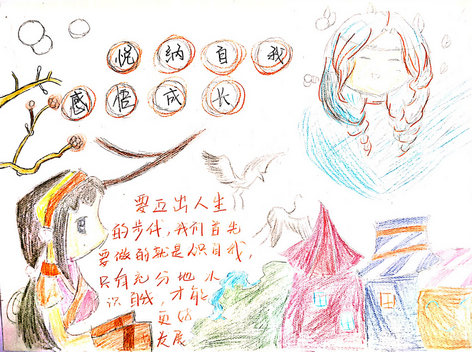 悦纳自我
感悟成长
要迈出人生
的步伐,我们首先
要做的就是认识自我
只有充分地认
识自我,才能
更好
发展